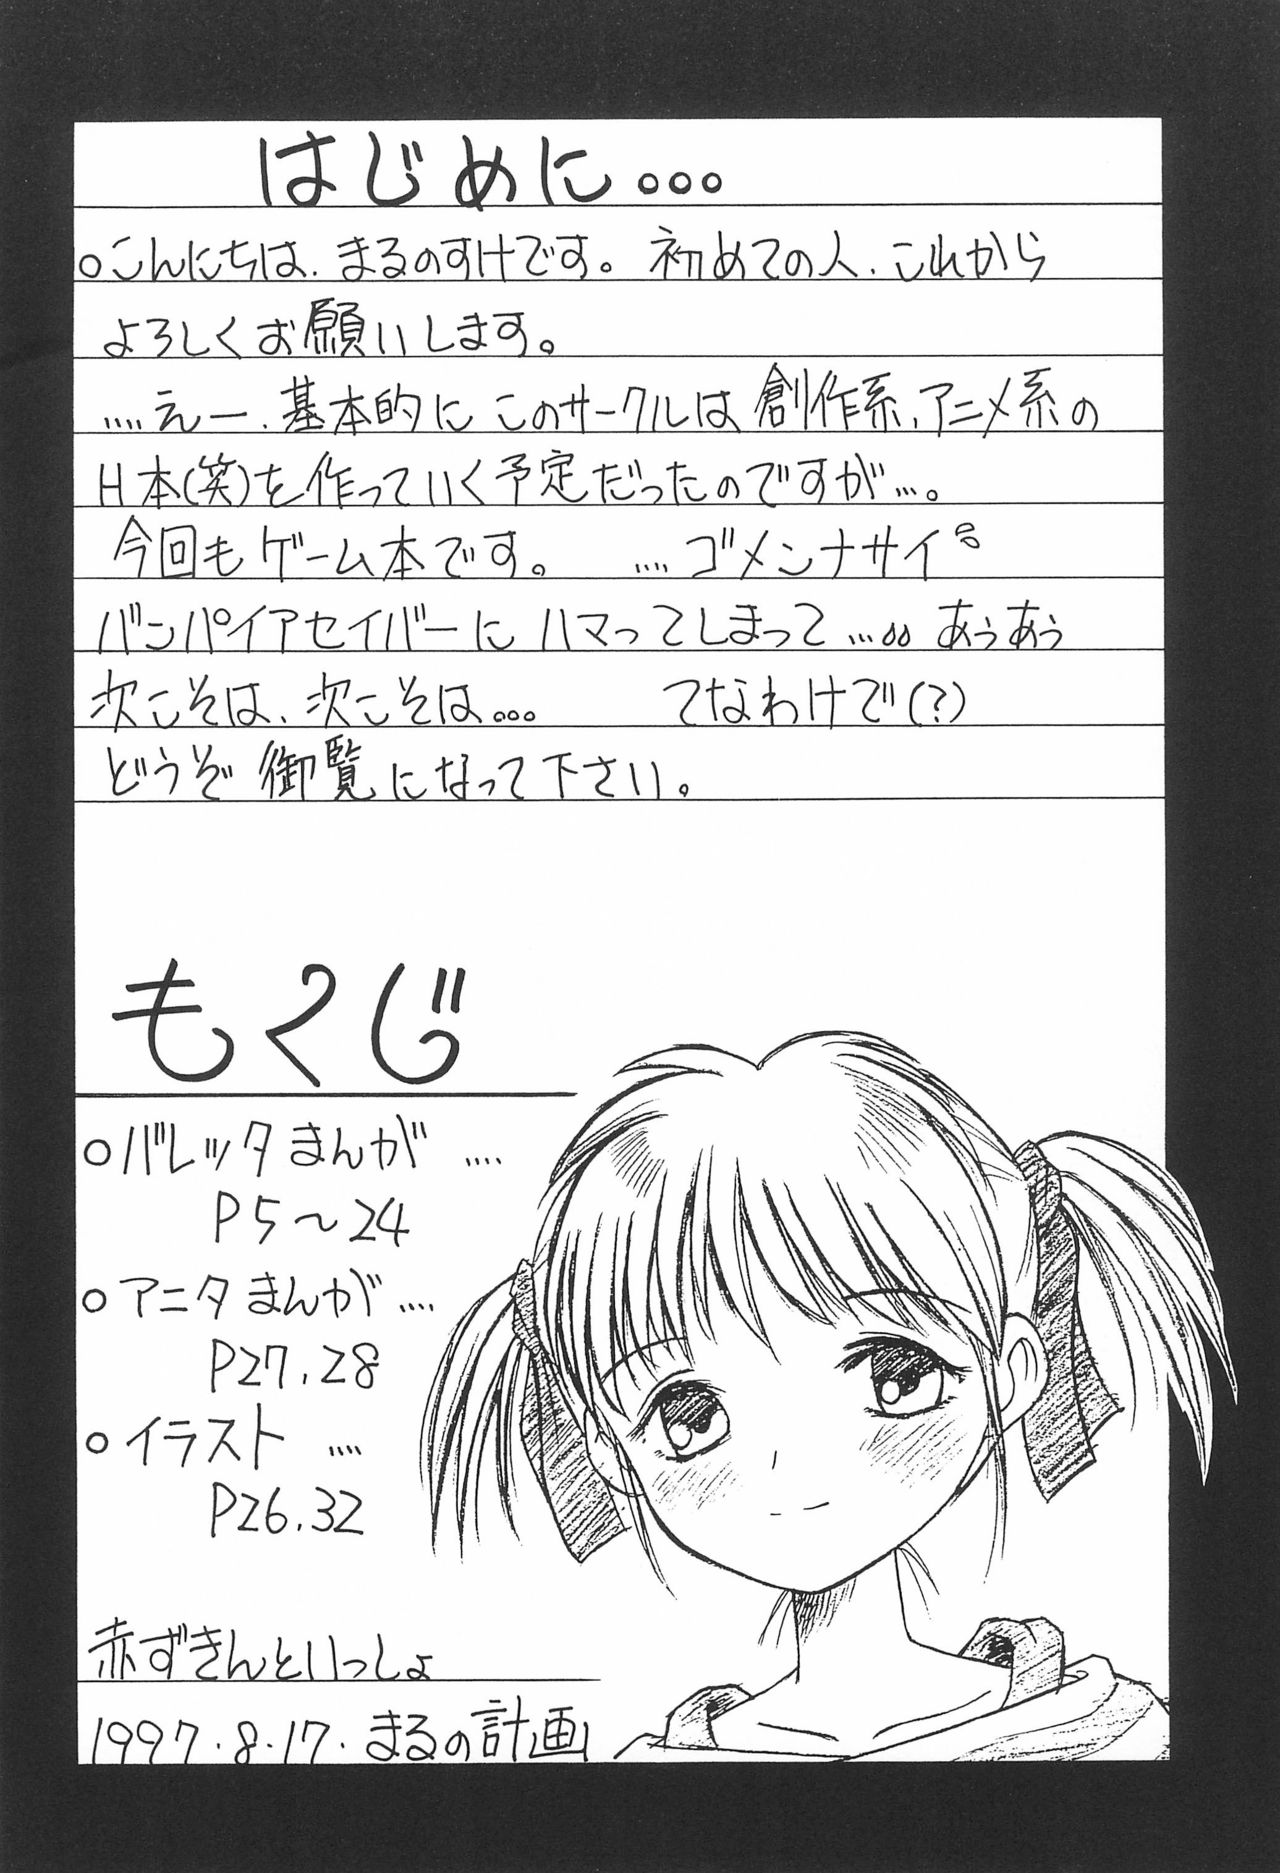 はじめに...
○こんにちは、まるのすけです。初めての人、これから
よろしくお願いします。
....えー、基本的にこのサークルは創作系、アニメ系の
H本(笑)を作っていく予定だったのですが...。
今回もゲーム本です。 ....ゴメンナサイ
バンパイアセイバーにハマってしまって... あぅあぅ
次こそは、次こそは... てなわけで(?)
どうぞ御覧になって下さい。
もくじ
○バレッタまんが ....
P5〜24
○アニタまんが ....
P27.28
○イラスト ....
P26.32
赤ずきんといっしょ
1997.8.17.まるの計画